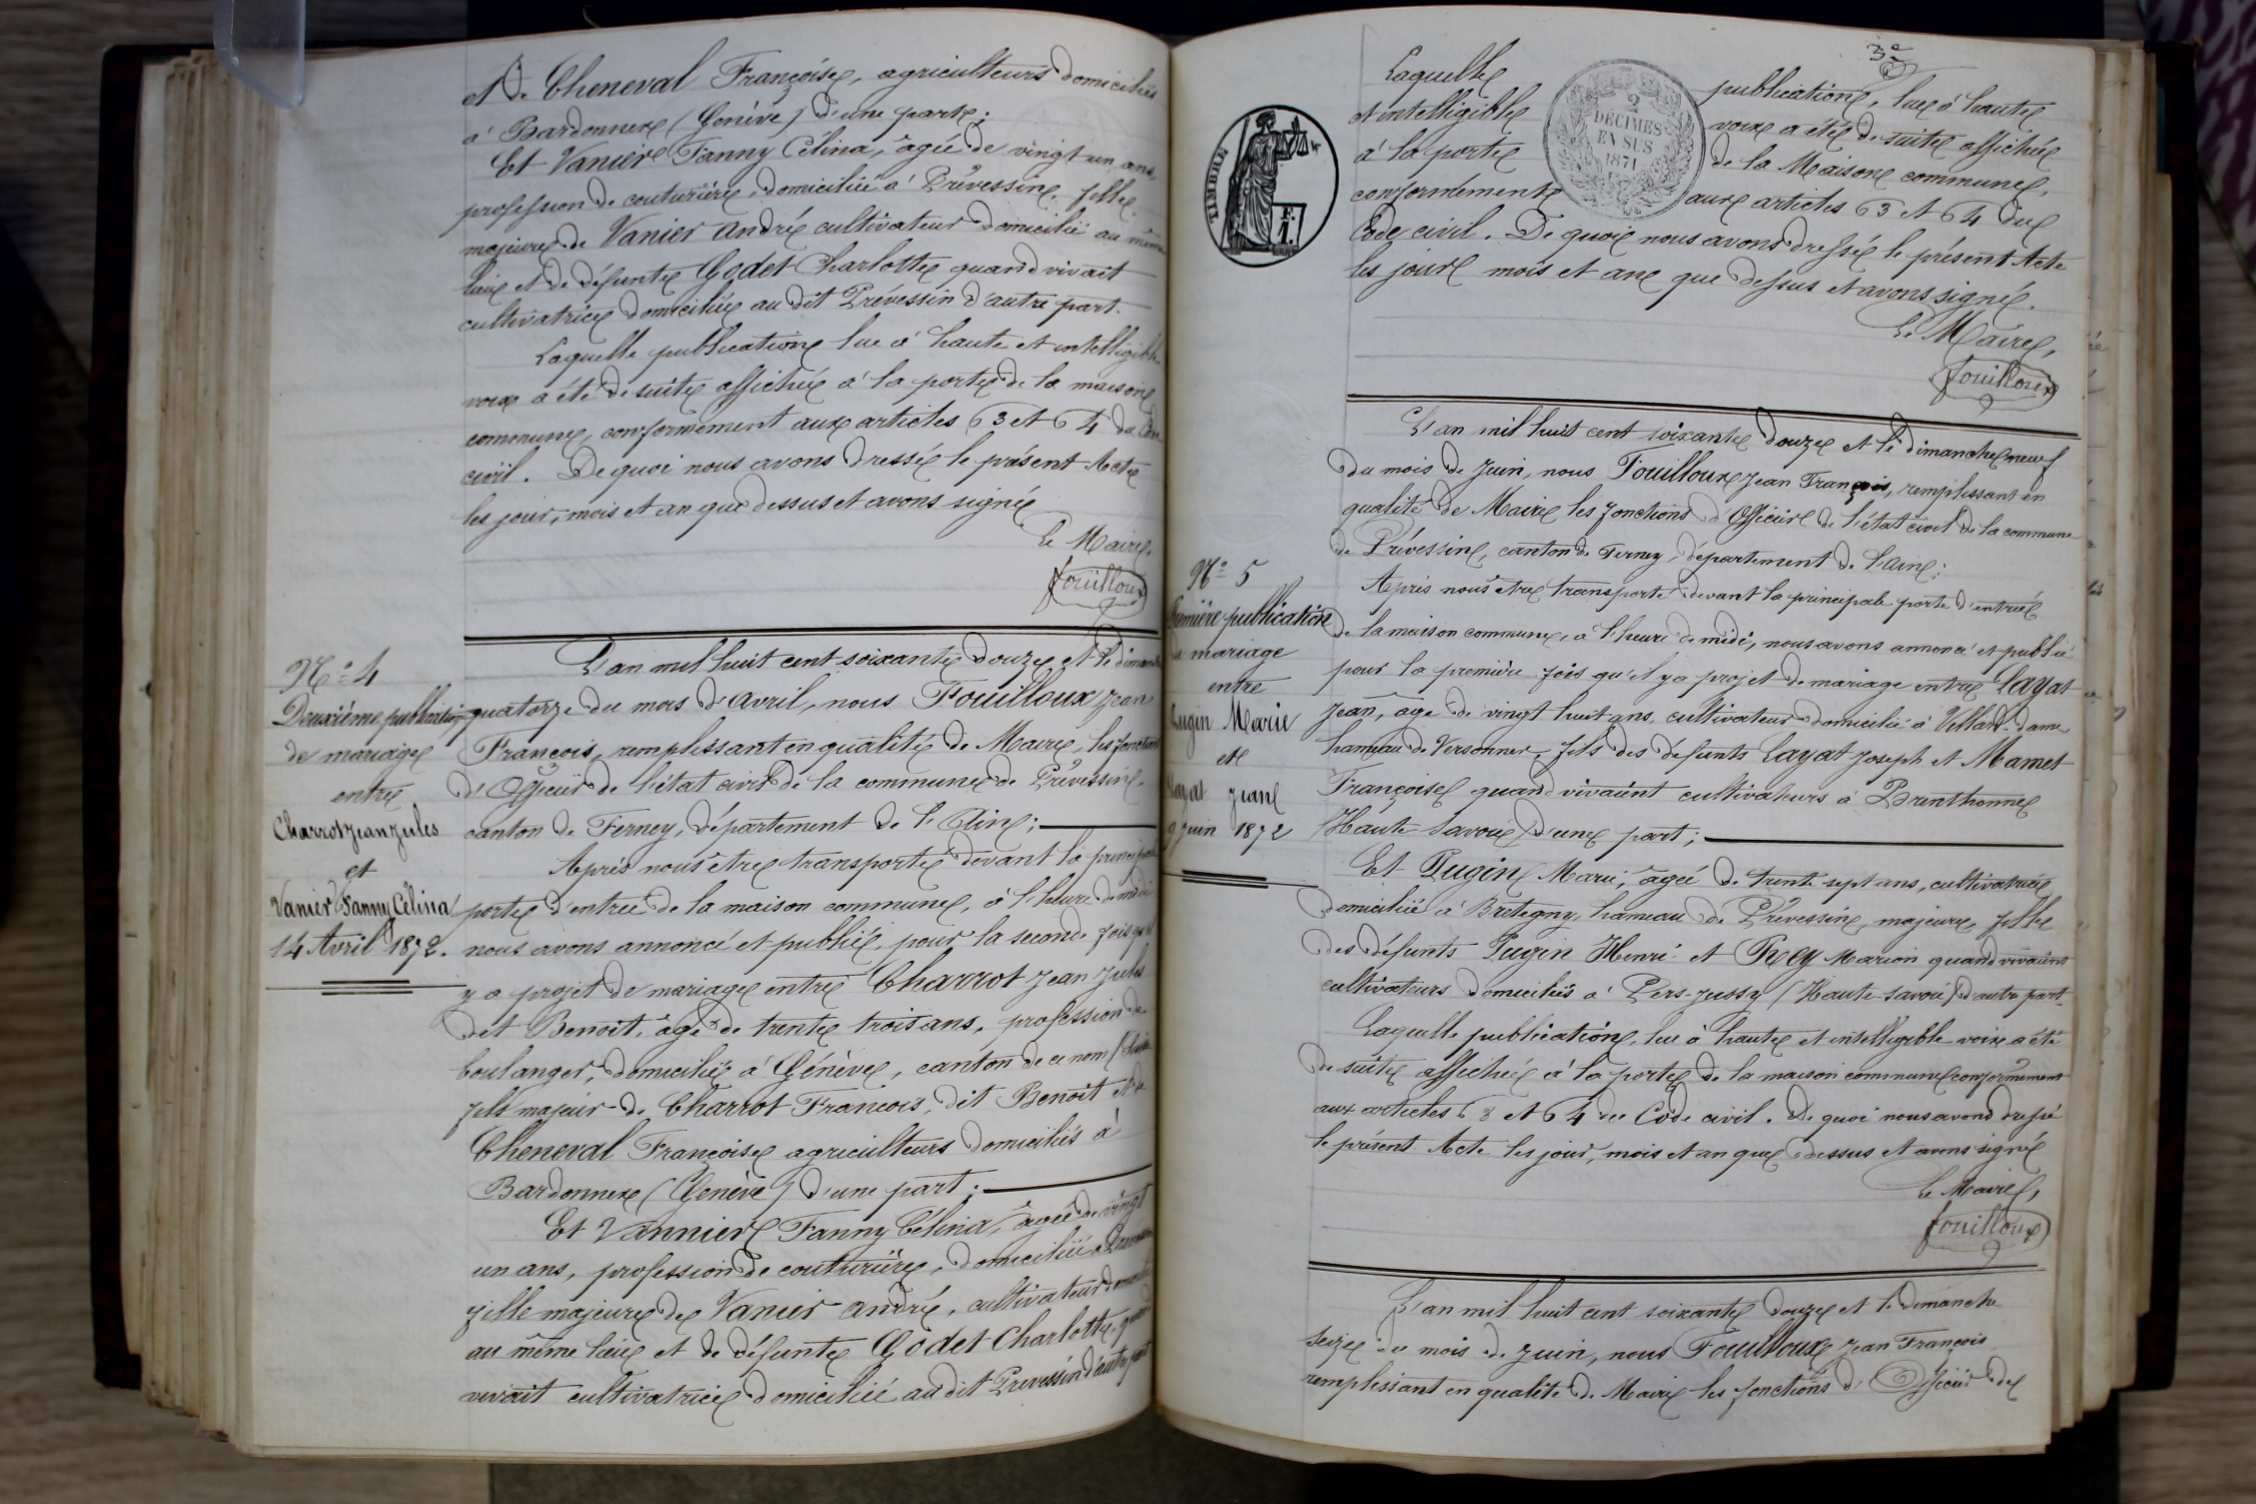 et de Cheneval Françoise, agriculteurs domiciliés
à Bardonnex (Genève) d'une part;
Et Vanier Fanny Célina, âgée de vingt un ans,
profession de couturière, domiciliée à Prévessin, fille
majeure de Vanier André cultivateur domicilié au même
lieu et de défunte Godet Charlotte quand vivait
cultivatrice domiciliée au dit Prévessin d'autre part.
Laquelle publication lue à haute et intelligible
voix a été de suite affichée à la porte de la maison
commune, conformément aux articles 63 et 64 du Code
civil. De quoi nous avons dressé le présent Acte
les jour, mois et an que dessus et avons signé
Le Maire,
Fouilloux
N° 4
Deuxième publication
de mariage
entre
Charrot Jean Jules
et
Vanier Fanny Célina
14 Avril 1872.
L'an mil huit cent soixante douze et le dimanche
quatorze du mois d'avril, nous Fouilloux Jean
François, remplissant en qualité de Maire, les fonctions
d'Officier de l'état civil de la commune de Prévessin,
canton de Ferney, département de l'Ain;
Après nous être transporté devant la principale
porte d'entrée de la maison commune, à l'heure de midi
nous avons annoncé et publié, pour la seconde fois qu'il
y a projet de mariage entre Charrot Jean Jules
dit Benoit, âgé de trente trois ans, profession de
boulanger, domicilié à Génève, canton de ce nom (Suisse
fils majeur de Charrot François, dit Benoit et de
Cheneval Françoise agriculteurs domiciliés à
Bardonnex (Genève) d'une part;
Et Vannier Fanny Célina, âgée de vingt
un ans, profession de couturière, domiciliée à Prévessin
fille majeure de Vanier André, cultivateur domicilié
au même lieu et de défunte Godet Charlotte, quand
vivait cultivatrice domiciliée au dit Prévessin d'autre part
3e
Laquelle publication, lue à haute
et intelligible voix a été de suite affichée
à la porte de la Maison commune,
conformément aux articles 63 et 64 du
Code civil. De quoi nous avons dressé le présent Acte
les jour mois et an que dessus et avons signé.
TIMBRE
2
DÉCIMES
EN SUS
1871
Le Maire,
Fouilloux
N° 5
Première publication
de mariage
entre
Pugin Marie
et
Layat Jean
9 Juin 1872
L'an mil huit cent soixante douze et le dimanche neuf
du mois de Juin, nous Fouilloux Jean François, remplissant en
qualité de Maire les fonctions d'Officier de l'état civil de la commune
de Prévessin, canton de Ferney, département de l'Ain;
Après nous être transporté devant la principale porte d'entrée
de la maison commune, à l'heure de midi, nous avons annoncé et publié
pour la première fois qu'il y a projet de mariage entre Layat
Jean, âgé de vingt huit ans, cultivateur domicilié à Villard-dame
hameau de Versonnex, fils des défunts Layat Joseph et Mamet
Françoise quand vivaient cultivateurs à Brenthonne
(Haute-Savoie) d'une part;
Et Pugin Marie, âgée de trente sept ans, cultivatrice
domiciliée à Bretegny, hameau de Prévessin, majeure, fille
des défunts Pugin Henri et Rey Marion quand vivaient
cultivateurs domiciliés à Pers-Jussy (Haute-Savoie) d'autre part
Laquelle publication, lue à haute et intelligible voix a été
de suite affichée à la porte de la maison commune conformément
aux articles 63 et 64 du Code civil. De quoi nous avons dressé
le présent Acte les jour, mois et an que dessus et avons signé
Le Maire,
Fouilloux
L'an mil huit cent soixante douze et le dimanche
seize du mois de Juin, nous Fouilloux Jean François
remplissant en qualité de Maire les fonctions d'Officier de